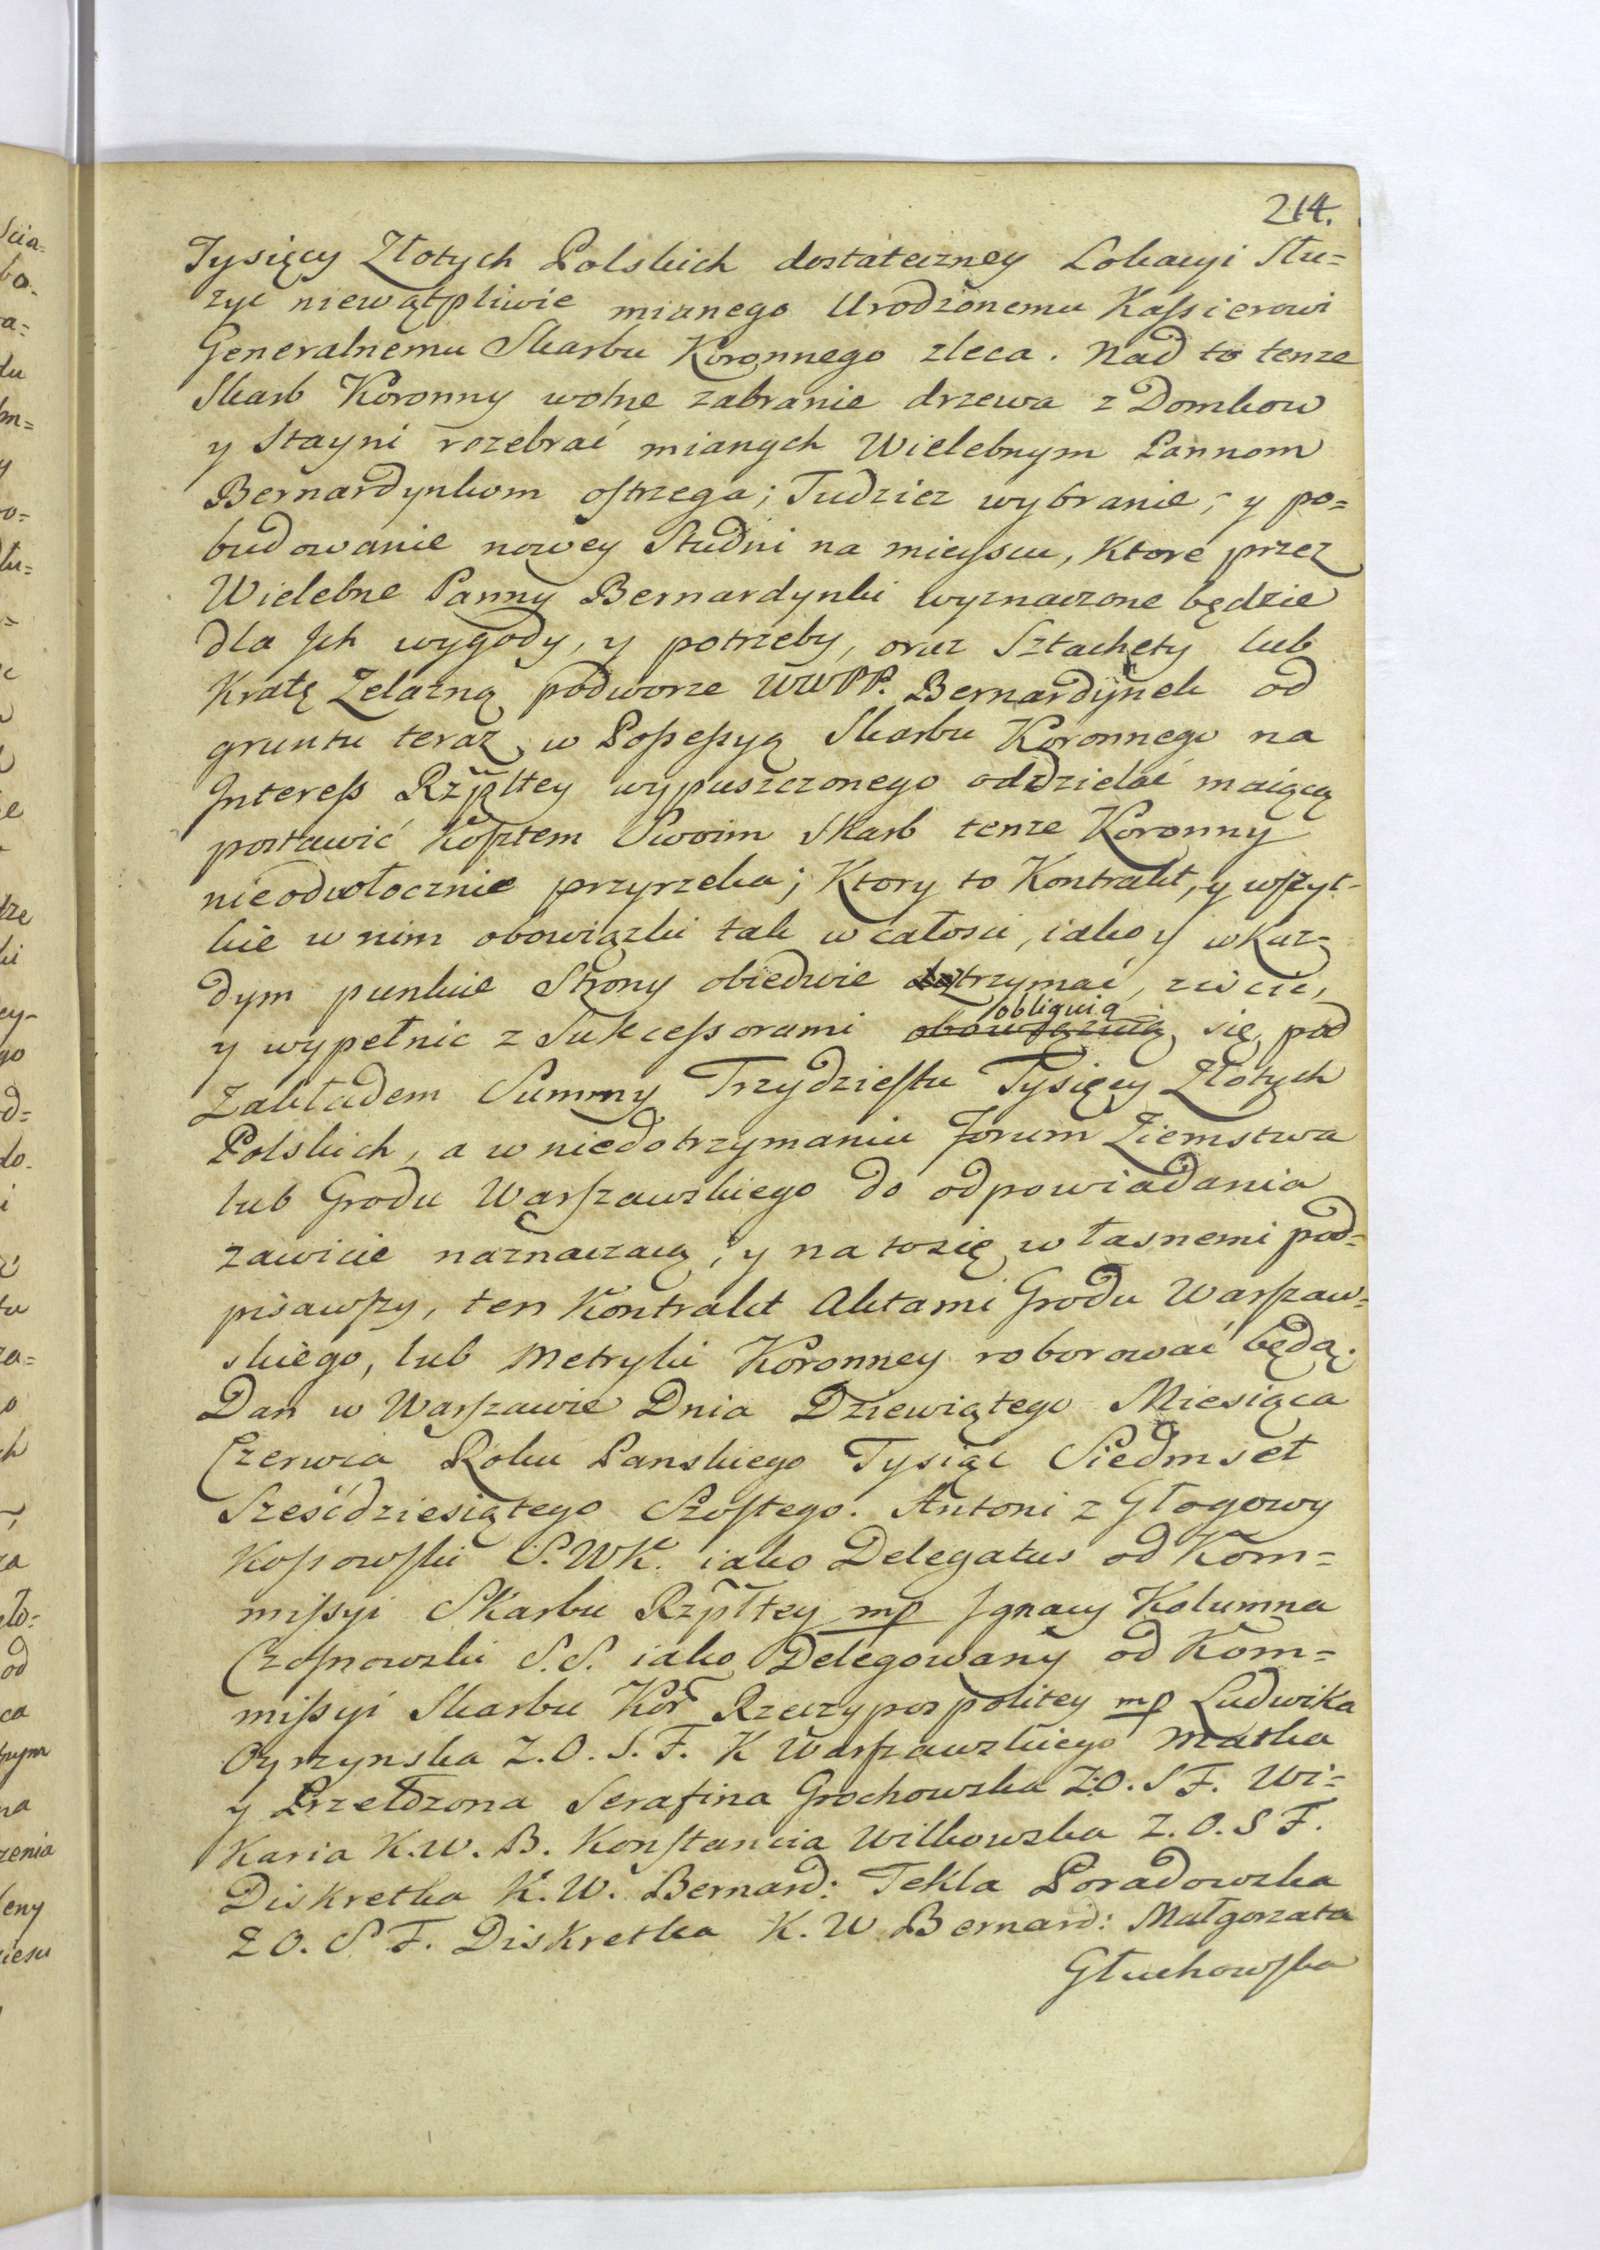 214.
Tysięcy Złotych Polskich dostateczney Lokacyi Słu=
zyc niewątpliwie mianego Urodzonemu Kassierowi
Generalnemu Skarbu Koronnego zleca. Nad to tenze
Skarb Koronny wolne zabranie drzewa z Domkow
y Stayni rozebrać mianych Wielebnym Pannom
Bernardynkom ostrzega; Tudziez wybranie, y po=
budowanie nowey Studni na mieyscu, Ktore przez
Wielebne Panny Bernardynki wyznaczone będzie
dla Jch wygody, y potrzeby, oraz Sztachety lub
Kratę Zelazną podworze WWPP. Bernardynek od
gruntu teraz w Possessyą Skarbu Koronnego na
Interess Rzpltey wypuszczonego oddzielać maiącą
postawić Kosztem Swoim Skarb tenze Koronny
nieodwłocznie przyrzeka; Ktory to Kontrakt, y wszyt-
kie w nim obowiązki tak w całosci, iako y w Kaz-
dym punkcie Strony obiedwie dotrzymać, ziścić,
obliguią
y wypełnic z Sukcessorami obowiązuią się pod
Zakładem Summy Trzydziestu Tysięcy Złotych
Polskich, a w niedotrzymaniu Forum Ziemstwa
lub Grodu Warszawskiego do odpowiadania
zawicie naznaczaią; y na to się własnemi pod=
pisawszy, ten Kontrakt Aktami Grodu Warszaw=
skiego, lub Metryki Koronney roborować będą.
Dan w Warszawie Dnia Dziewiątego Miesiąca
Czerwca Roku Panskiego Tysiąc Siedmset
Sześćdziesiątego Szostego. Antoni z Głogowy
Kossowski S.WK. iako Delegatus od Kom=
missyi Skarbu Rzpltey mp Jgnacy Kolumna
Czosnowski S.S. iako Delegowany od Kom=
missyi Skarbu Kor Rzeczypospolitey mp Ludwika
Oyrzynska Z.O.S.F. K Warszawskiego Matka
y Przełozona Serafina Grochowska Z.O.S F. Wi=
Karia K.W.B. Konstancia Wilkowska Z.O.S F.
Diskretka K.W. Bernard: Tekla Poradowska
Z O. S F. Diskretka K.W Bernard: Małgorzata
Głuchowska